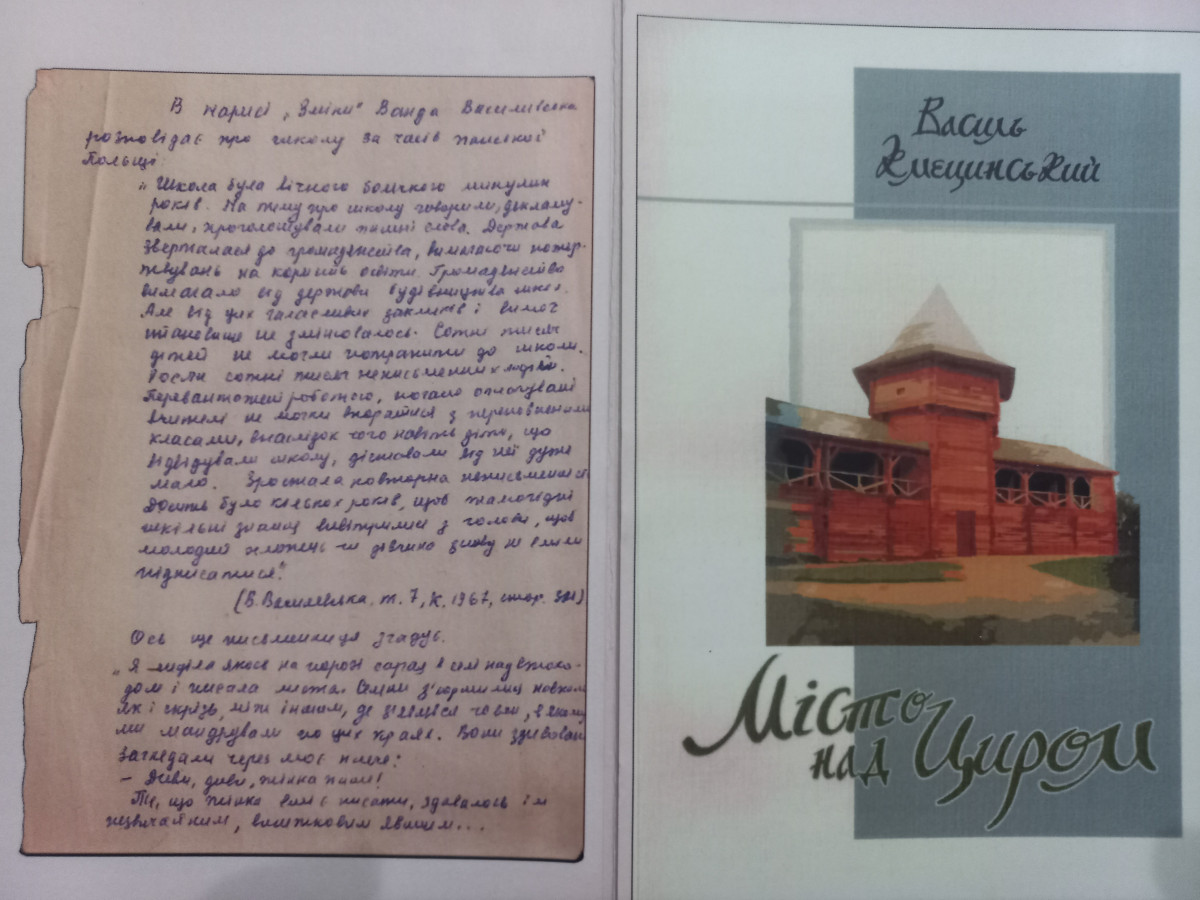 В нарисі „Зміни" Ванда Василевська
розповідає про школу за часів панської
Польщі:
„Школа була вічною болячкою минулих
років. На тему про школу говорили, деклamу-
вали, проголошували пишні слова. Держава
зверталася до громадянства, вимагаючи пожер-
твувань на користь освіти. Громадянство
вимагало від держави будівництва шкіл.
Але від цих галасливих закликів і вимог
становище не змінювалось. Сотні тисяч
дітей не могли потрапити до школи.
Росли сотні тисяч неписьменних людей.
Перевантажені роботою, погано оплачувані
вчителі не могли впоратися з переповненими
класами, внаслідок чого навіть діти, що
відвідували школу, діставали від неї дуже
мало. Зростала повторна неписьменність.
Досить було кількох років, щоб
шкільні знання вивітрилися з голови, щоб
молодий хлопець чи дівчина знову не вміли
підписатися."
(В. Василевська, т. 7, К, 1967, стор.
Ось ще письменниця згадує.
„Я сиділа якось на порозі сарая в селі над
і писала листа. Селяни з'юрмилися навколо
як і скрізь, між іншим, де з'являвся човен, в якому
ми мандрували по цих краях. Вони здивовані
заглядали через моє плече:
– Диви, диви, жінка пише!
Те, що жінка вміє писати, здавалось їм
незвичайним, винятковим явищем...
Василь
Хмєцинський
Місто
над Циром